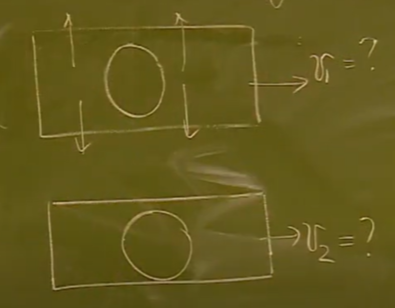 v₁ = ?
v₂ = ?